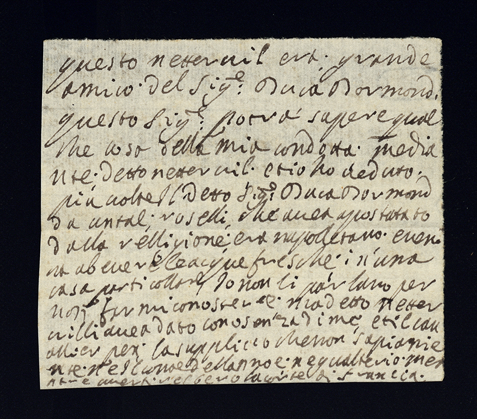 questo nettervil era. grande
amico. del Sig.e Duca Dormond.
questo Sig.e potra sapere qual
che cosa della mia condotta. media
nte. detto nettervil. et io ho veduto.
piu volte il detto Sig.e Duca Dormond
da un tal, roselli, che avea apostatato
dalla relligione, era napoletano. e
a bevere le acque fresche. in una
casa particolare Io non li parlavo per
non farmi conoscere e mia detto netter
villi avea dato conosenza di me, et il cau
allier per. la supplico che non sapia nie
nte. nes uno dell nome. ne qualterio.
di francia.